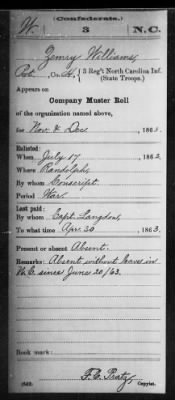 (Confederate.)
W. 3 N.C.
Zenry Williams,
Pvt., Co. H, 3 Reg't North Carolina Inf.
(State Troops.)
Appears on
Company Muster Roll
of the organization named above,
for Nov. & Dec., 186
Enlisted:
When July 17, 1862.
Where Randolph,
By whom Conscript.
Period War.
Last paid:
By whom Capt. Langdon,
To what time Apr. 30, 1863.
Present or absent Absent.
Remarks: Absent without leave in
N.C. since June 20/63.
Book mark:
(642) F. C. Pratz, Copyist.